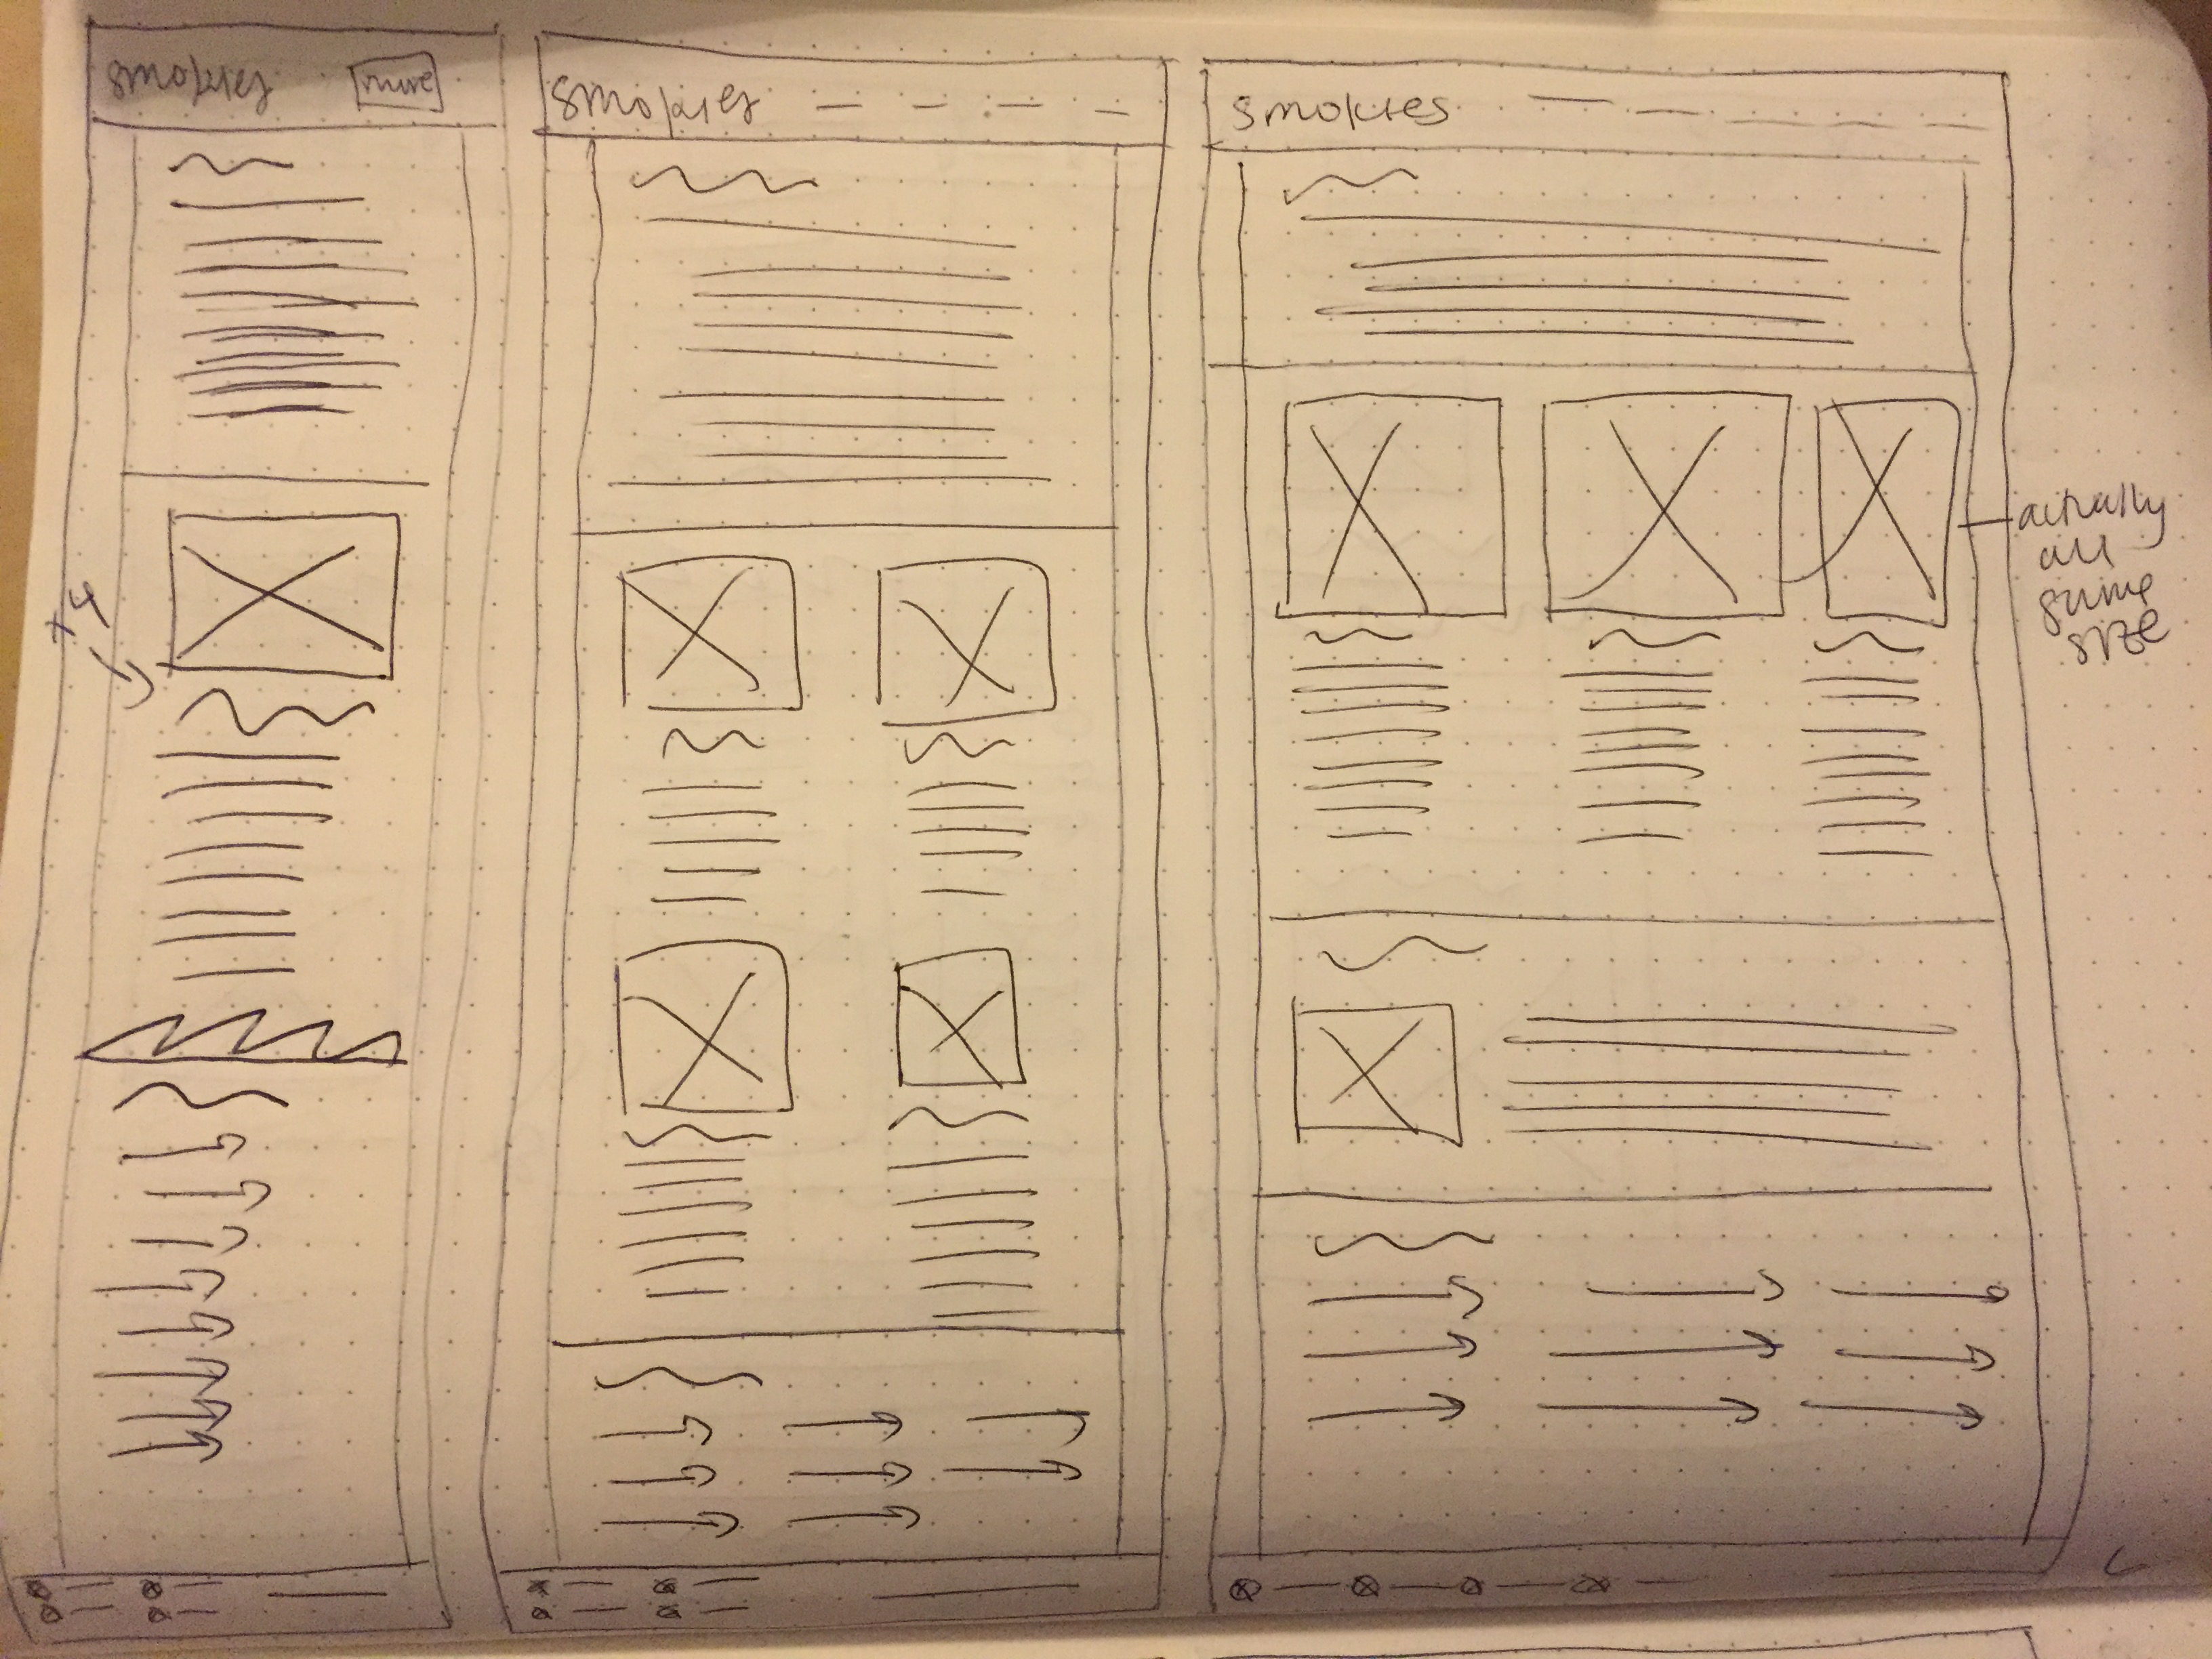 smokies more
smokies
smokies
x4
actually
all
same
size